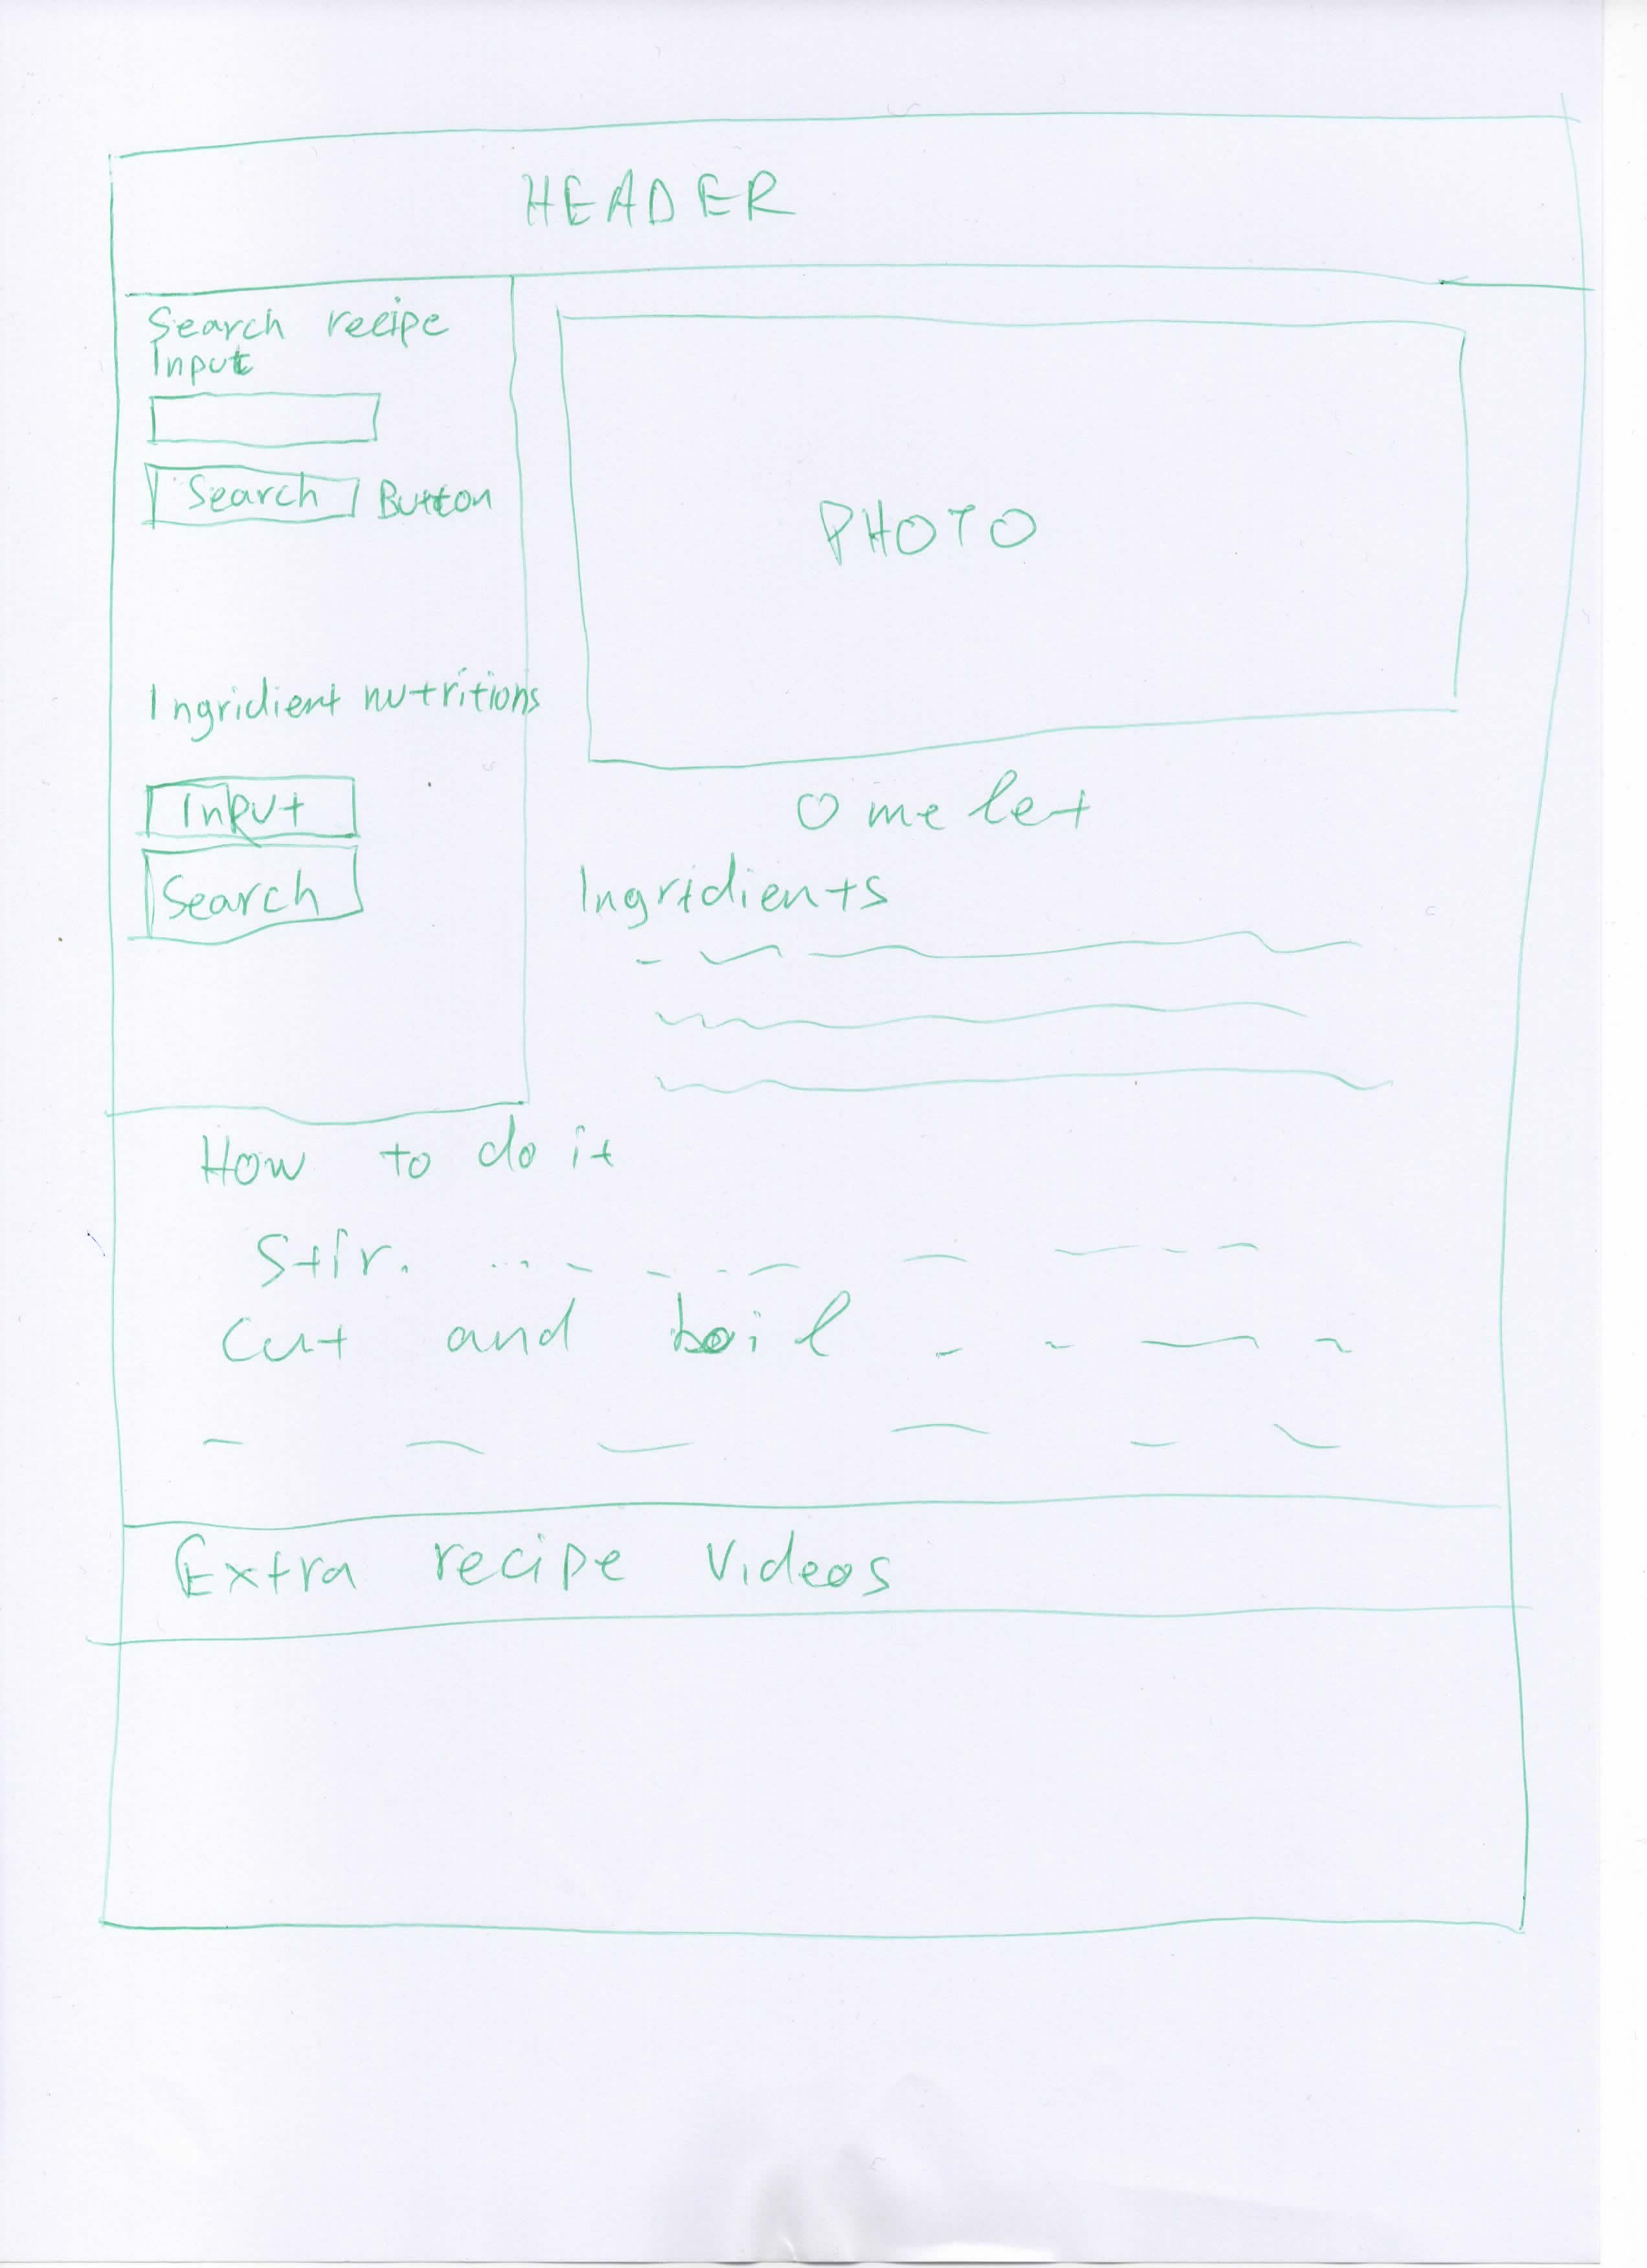 HEADER
Search recipe
Input
Search Button
Ingridient nutritions
Input
Search
PHOTO
Omelet
Ingridients
How to do it
Stir.
Cut and boil
Extra recipe videos